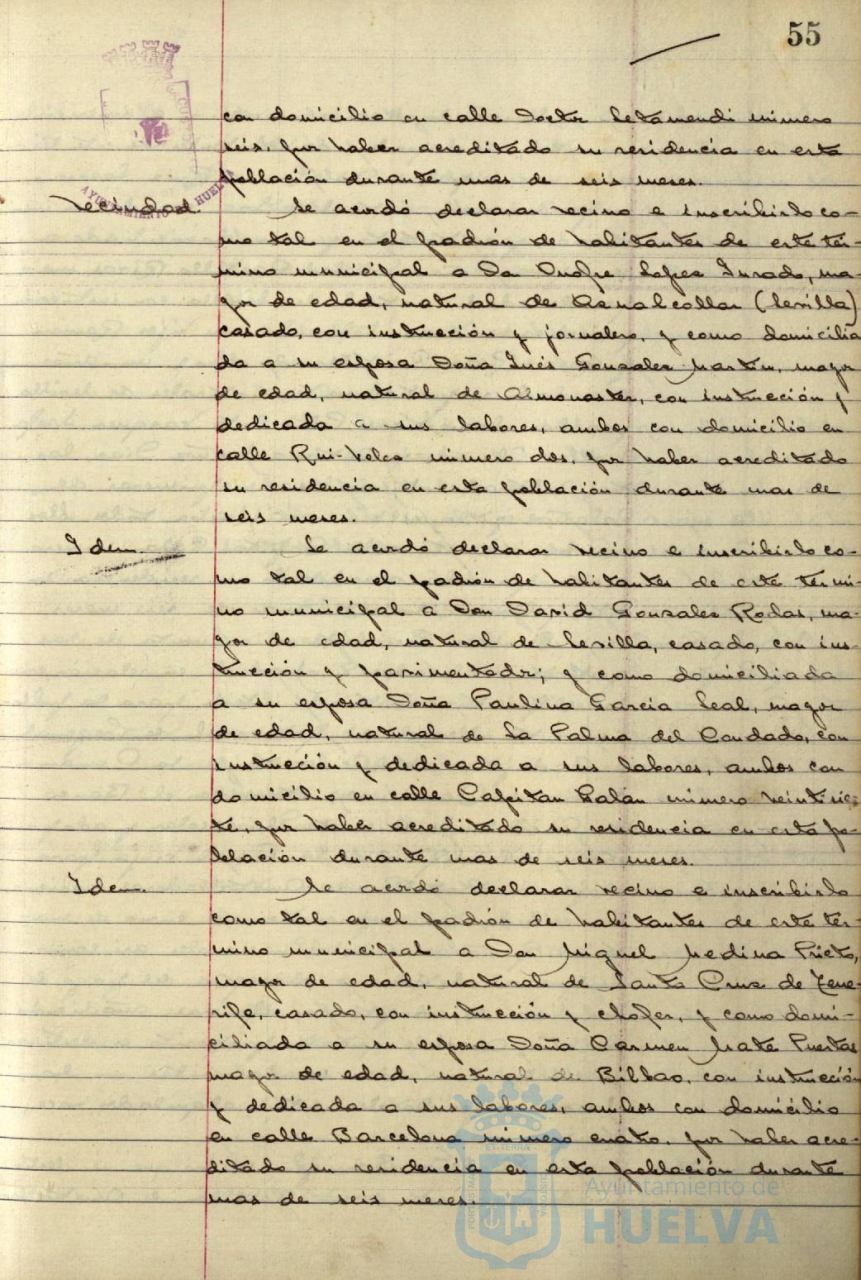 55
con domicilio en calle Doctor Letamendi número
seis, por haber acreditado su residencia en esta
población durante mas de seis meses.
AYUNTAMIENTO HUELVA
Vecindad.
Se acordó declarar vecino e inscribirlo co-
mo tal en el padrón de habitantes de este tér-
mino municipal a Don Onofre Lopez Jurado, ma-
yor de edad, natural de Aznalcollar (Sevilla)
casado, con instrucción y jornalero, y como domicilia
da a su esposa Doña Inés Gonzalez Martin, mayor
de edad, natural de Almonaster, con instrucción y
dedicada a sus labores, ambos con domicilio en
calle Rui-Velez número dos, por haber acreditado
su residencia en esta población durante mas de
seis meses.
Idem.
Se acordó declarar vecino e inscribirlo co-
mo tal en el padrón de habitantes de este térmi-
no municipal a Don David Gonzalez Rodas, ma-
yor de edad, natural de Sevilla, casado, con ins-
trucción y pavimentador; y como domiciliada
a su esposa Doña Paulina Garcia Leal, mayor
de edad, natural de La Palma del Condado, con
instrucción y dedicada a sus labores, ambos con
domicilio en calle Capitan Galán número veintisie-
te, por haber acreditado su residencia en esta po-
blación durante mas de seis meses.
Idem.
Se acordó declarar vecino e inscribirlo
como tal en el padrón de habitantes de este tér-
mino municipal a Don Miguel Medina Prieto,
mayor de edad, natural de Santa Cruz de Tene-
rife, casado, con instrucción y chofer, y como domi-
ciliada a su esposa Doña Carmen Mate Puertas
mayor de edad, natural de Bilbao, con instrucción
y dedicada a sus labores, ambos con domicilio
en calle Barcelona número cuatro, por haber acre-
ditado su residencia en esta población durante
mas de seis meses.
Ayuntamiento de
HUELVA